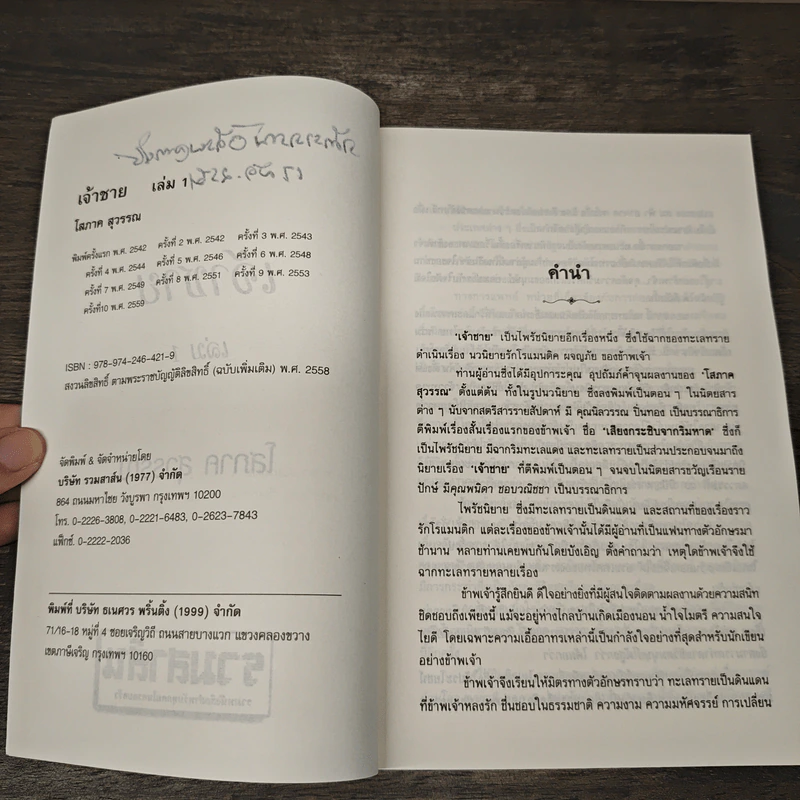 เจ้าซาย เล่ม 1
โสภาค สุวรรณ
พิมพ์ครั้งแรก พ.ศ. 2542 ครั้งที่ 2 พ.ศ. 2542 ครั้งที่ 3 พ.ศ. 2543
ครั้งที่ 4 พ.ศ. 2544 ครั้งที่ 5 พ.ศ. 2546 ครั้งที่ 6 พ.ศ. 2548
ครั้งที่ 7 พ.ศ. 2549 ครั้งที่ 8 พ.ศ. 2551 ครั้งที่ 9 พ.ศ. 2553
ครั้งที่10 พ.ศ. 2559
ISBN : 978-974-246-421-9
สงวนลิขสิทธิ์ ตามพระราชบัญญัติลิขสิทธิ์ (ฉบับเพิ่มเติม) พ.ศ. 2558
จัดพิมพ์ & จัดจำหน่ายโดย
บริษัท รวมสาส์น (1977) จำกัด
864 ถนนมหาไชย วังบูรพา กรุงเทพฯ 10200
โทร. 0-2226-3808, 0-2221-6483, 0-2623-7843
แฟ็กซ์. 0-2222-2036
พิมพ์ที่ บริษัท ธเนศวร พริ้นติ้ง (1999) จำกัด
71/16-18 หมู่ที่ 4 ซอยเจริญวิถี ถนนสายบางแวก แขวงคลองขวาง
เขตภาษีเจริญ กรุงเทพฯ 10160
คำนำ
"เจ้าซาย" เป็นไพรัชนิยายอีกเรื่องหนึ่ง ซึ่งใช้ฉากของทะเลทราย
ดำเนินเรื่อง นวนิยายรักโรแมนติค ผจญภัย ของข้าพเจ้า
ท่านผู้อ่านซึ่งได้มีอุปการะคุณ อุปถัมภ์ค้ำจุนผลงานของ "โสภาค
สุวรรณ" ตั้งแต่ต้น ทั้งในรูปนวนิยาย ซึ่งลงพิมพ์เป็นตอน ๆ ในนิตยสาร
ต่าง ๆ นับจากสตรีสารรายสัปดาห์ มี คุณนิลวรรณ ปิ่นทอง เป็นบรรณาธิการ
ตีพิมพ์เรื่องสั้นเรื่องแรกของข้าพเจ้า ชื่อ "เสียงกระซิบจากริมหาด" ซึ่งก็
เป็นไพรัชนิยาย มีฉากริมทะเลแดง และทะเลทรายเป็นส่วนประกอบจนมาถึง
นิยายเรื่อง "เจ้าซาย" ที่ตีพิมพ์เป็นตอน ๆ จนจบในนิตยสารขวัญเรือนราย
ปักษ์ มีคุณพนิดา ชอบวณิชชา เป็นบรรณาธิการ
ไพรัชนิยาย ซึ่งมีทะเลทรายเป็นดินแดน และสถานที่ของเรื่องราว
รักโรแมนติก แต่ละเรื่องของข้าพเจ้านั้นได้มีผู้อ่านที่เป็นแฟนทางตัวอักษรมา
ช้านาน หลายท่านเคยพบกันโดยบังเอิญ ตั้งคำถามว่า เหตุใดข้าพเจ้าจึงใช้
ฉากทะเลทรายหลายเรื่อง
ข้าพเจ้ารู้สึกยินดี ดีใจอย่างยิ่งที่มีผู้สนใจติดตามผลงานด้วยความสนิท
ชิดชอบถึงเพียงนี้ แม้จะอยู่ห่างไกลบ้านเกิดเมืองนอน น้ำใจไมตรี ความสนใจ
ไยดี โดยเฉพาะความเอื้ออาทรเหล่านี้เป็นกำลังใจอย่างที่สุดสำหรับนักเขียน
อย่างข้าพเจ้า
ข้าพเจ้าจึงเรียนให้มิตรทางตัวอักษรทราบว่า ทะเลทรายเป็นดินแดน
ที่ข้าพเจ้าหลงรัก ชื่นชอบในธรรมชาติ ความงาม ความมหัศจรรย์ การเปลี่ยน